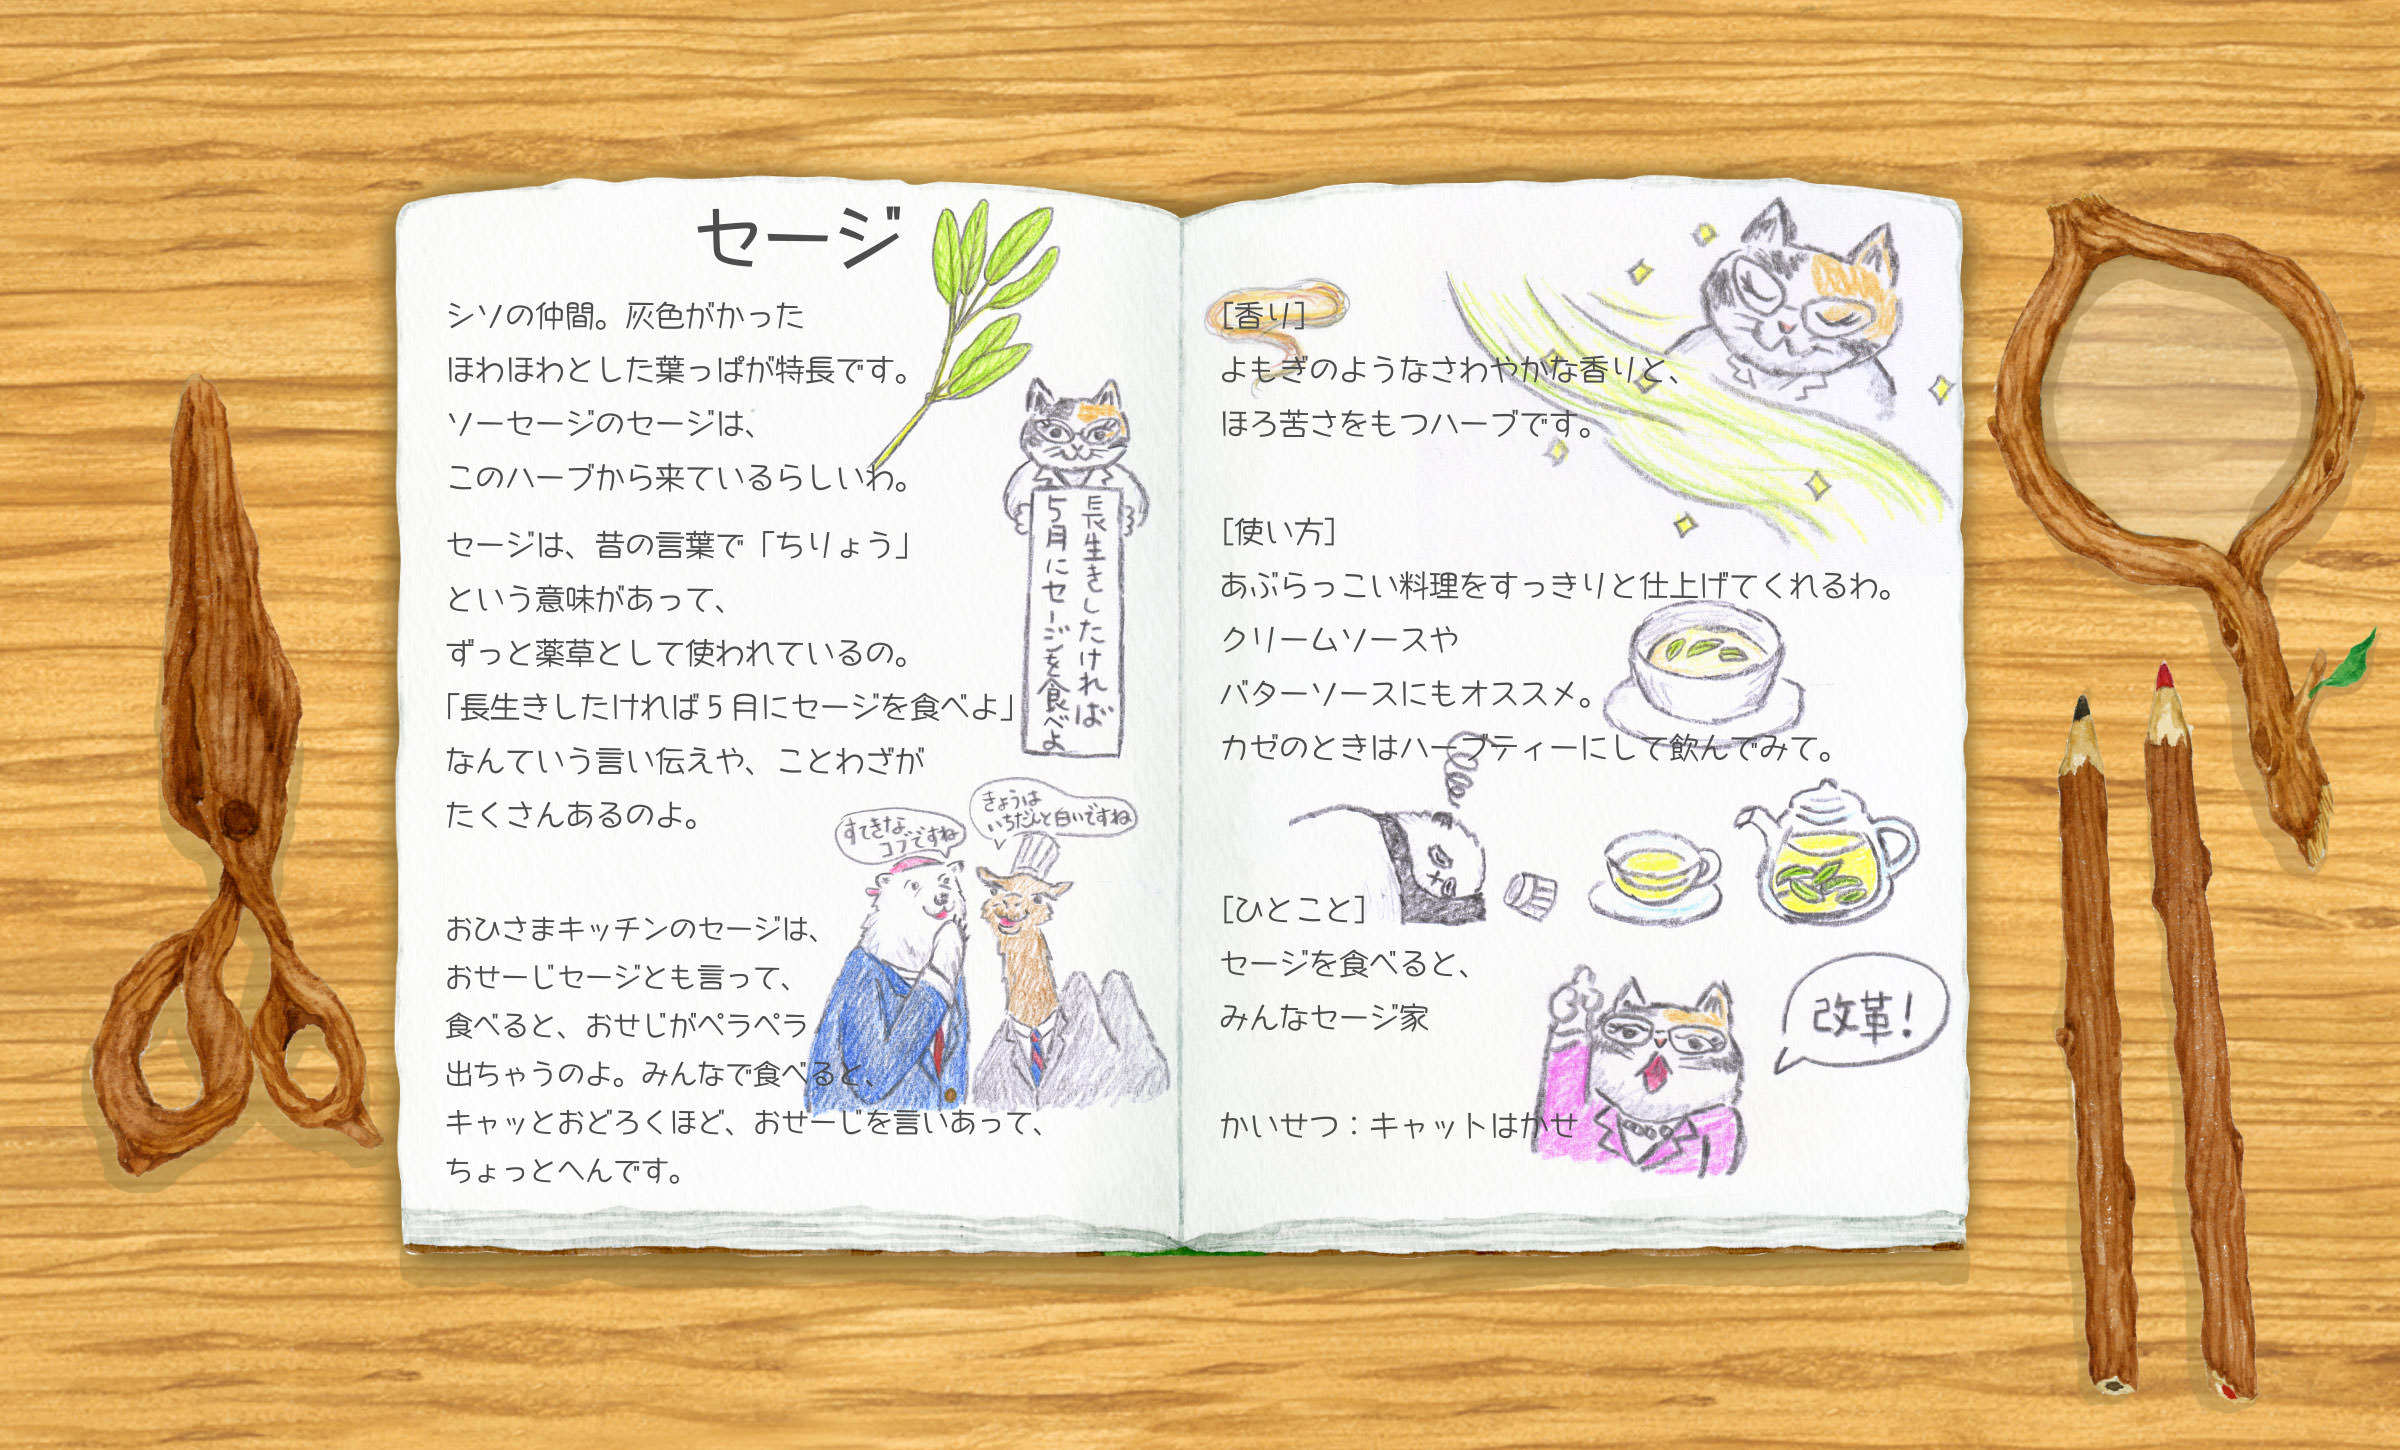 セージ
シソの仲間。灰色がかった
ほわほわとした葉っぱが特長です。
ソーセージのセージは、
このハーブから来ているらしいわ。
セージは、昔の言葉で「ちりょう」
という意味があって、
ずっと薬草として使われているの。
「長生きしたければ５月にセージを食べよ」
なんていう言い伝えや、ことわざが
たくさんあるのよ。
長生きしたければ
５月にセージを食べよ
すてきな
コブですね
きょうは
いちだんと白いですね
おひさまキッチンのセージは、
おせーじセージとも言って、
食べると、おせじがペラペラ
出ちゃうのよ。みんなで食べると、
キャッとおどろくほど、おせーじを言いあって、
ちょっとへんです。
[香り]
よもぎのようなさわやかな香りと、
ほろ苦さをもつハーブです。
[使い方]
あぶらっこい料理をすっきりと仕上げてくれるわ。
クリームソースや
バターソースにもオススメ。
カゼのときはハーブティーにして飲んでみて。
[ひとこと]
セージを食べると、
みんなセージ家
改革！
かいせつ：キャットはかせ